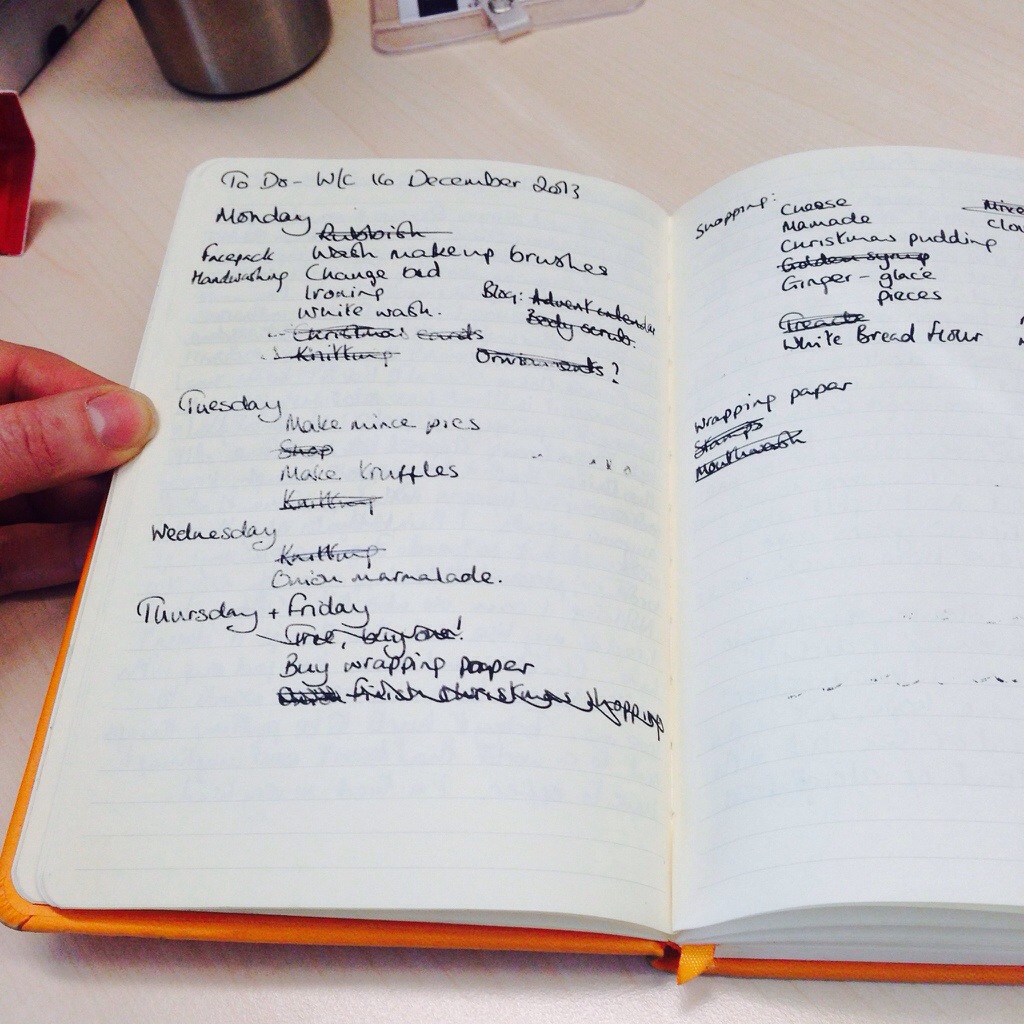 To Do - W/C 16 December 2013
Monday
Rubbish
Facepack Wash makeup brushes
Handwashing Change bed
Ironing
White wash.
Blog: Advent calendar
Body scrub.
Christmas cards
Knitting
Ornaments?
Tuesday
Make mince pies
Shop
Make truffles
Knitting
Wednesday
Knitting
Onion marmalade.
Thursday + Friday
Tree, buy one!
Buy wrapping paper
finish christmas shopping
Shopping: Cheese
Mamade
Christmas pudding
Golden syrup
Ginger - glacé
pieces
Treacle
White Bread flour
wrapping paper
Stamps
Mouthwash